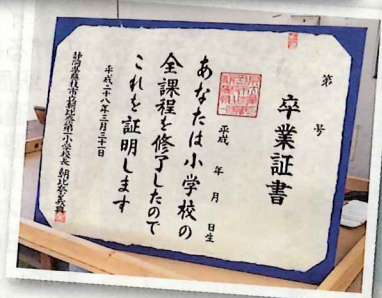 第　号
卒業証書
平成　年　月　日生
あなたは小学校の
全課程を修了したので
これを証明します
平成二十八年三月三十一日
静岡県藤枝市立朝比奈第一小学校長